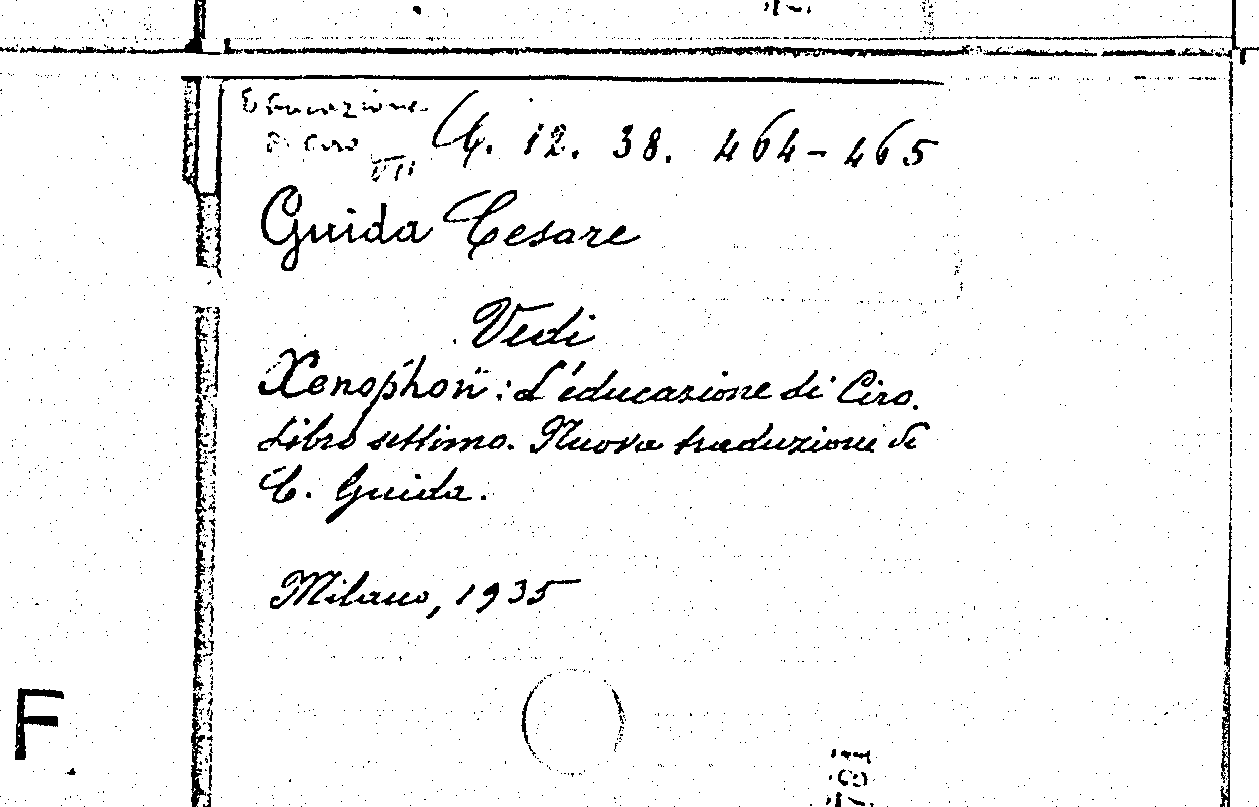 Educazione
di Ciro
VII
G. 12. 38. 464-465
Guida Cesare
Vedi
Xenophon: L'educazione di Ciro.
Libro settimo. Nuova traduzione di
C. Guida.
Milano, 1935
F
781